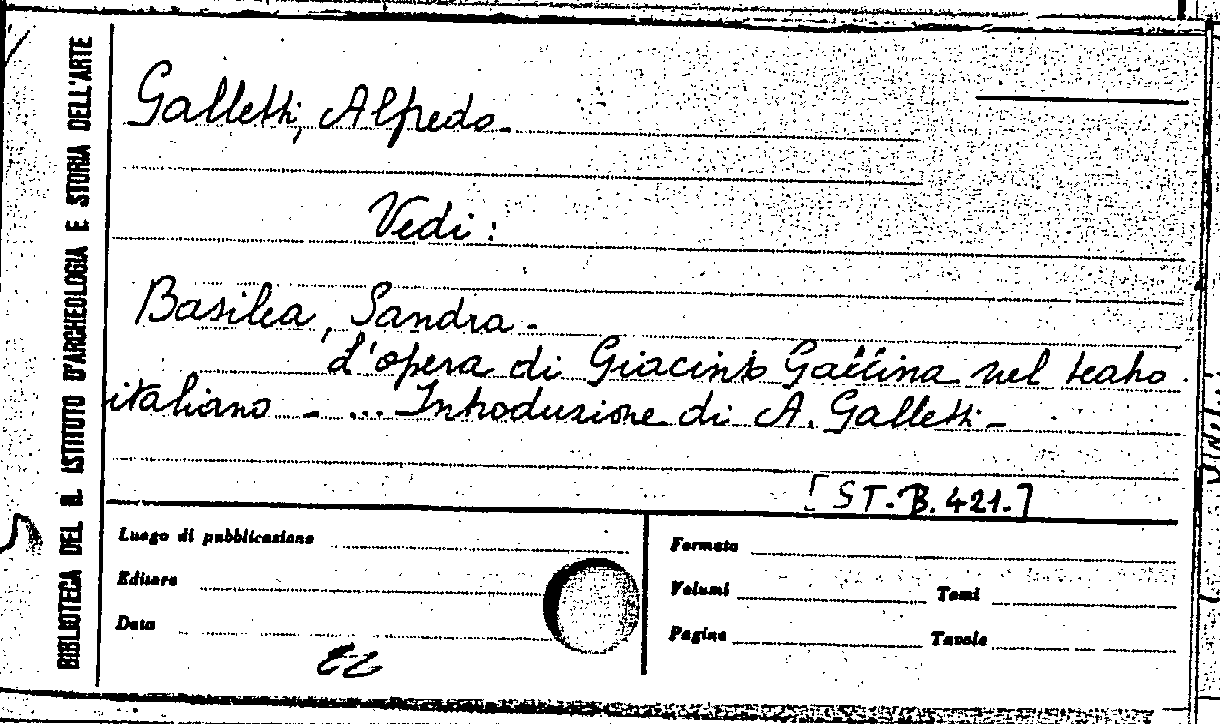 BIBLIOTECA DEL R. ISTITUTO D'ARCHEOLOGIA E STORIA DELL'ARTE
Galletti, Alfredo.
Vedi:
Basilea, Sandra.
L'opera di Giacinto Gallina nel teatro
italiano - ... Introduzione di A. Galletti -
[ST.B. 421.]
Luogo di pubblicazione
Editore
Data
Formato
Volumi Tomi
Pagine Tavole